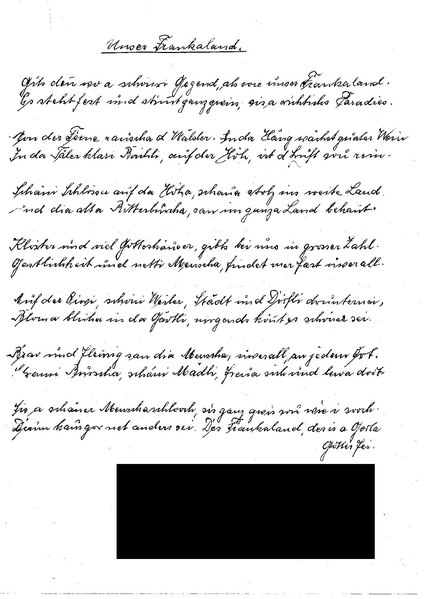 Unser Frankaland.
Gits denn wo a schöni Gegend, als wie unser Frankaland.
Es steht fest und stimt ganz gwin, sis a richtichs Paradies.
Von der Ferne rauscha d Wälder. In da Häng wächst guater Wein
In da Täler klari Bächli, auf der Höh, ist d Luft sou rein.
Schöni Schlösser auf da Höha, schaua stolz ins weite Land
und dia alta Ritterbürcha, san im ganza Land bekant.
Klöster und viel Gotteshäuser, gibts bei uns in groser Zahl.
Gastlichkeit und netti Menscha, findet mer fast überall.
Auf der schöni Weiler, Städt und Dörfli drunternei,
Bloma blüha in da Gärtli, nirgends könnt es schöner sei.
Brav und Fleissig san dia Menscha, überall, an jedem Ort.
Bürscha, schöni Mädli, freua sich und lewa dort
Sis a schöner Menschaschloch, sis ganz gwis sou wie i soch.
Drum kaus gor net anders sei. Des Frankaland, des is a Gorta
Gottes fei.